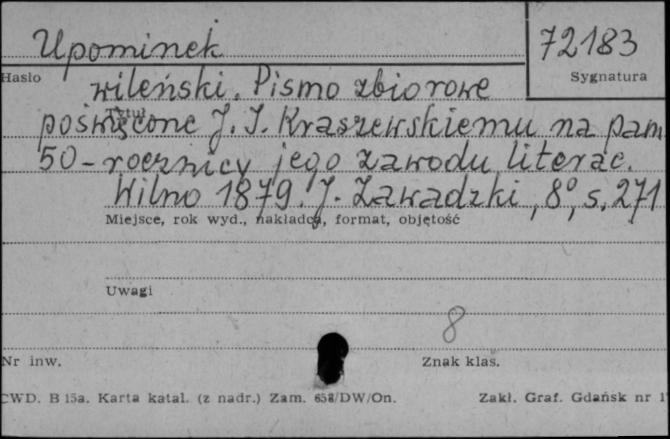 Upominek
72183
Hasło
Sygnatura
wileński. Pismo zbiorowe
Tytuł
poświęcone J. I. Kraszewskiemu na pam.
50-rocznicy jego zawodu literac.
Wilno 1879. J. Zawadzki, 8°, s. 271
Miejsce, rok wyd., nakładca, format, objętość
Uwagi
8
Nr inw.
Znak klas.
CWD. B 15a. Karta katal. (z nadr.) Zam. 658/DW/On.
Zakł. Graf. Gdańsk nr 1